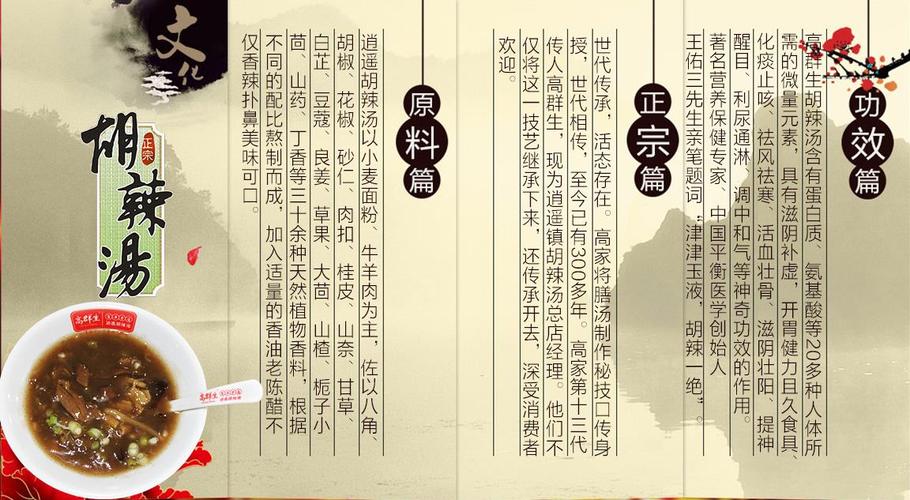 功效篇
高群生胡辣汤含有蛋白质、氨基酸等20多种人体所
需的微量元素，具有滋阴补虚，开胃健力且久食具、
化痰止咳 祛风祛寒、活血壮骨、滋阴壮阳、提神
醒目、利尿通淋 调中和气等神奇功效的作用。
著名营养保健专家、中国平衡医学创始人
王佑三先生亲笔题词“津津玉液，胡辣一绝”。
正宗篇
世代传承，活态存在。高家将膳汤制作秘技囗传身
授，世代相传，至今已有300多年。高家第十三代
传人高群生，现为逍遥镇胡辣汤总店经理。他们不
仅将这一技艺继承下来，还传承开去，深受消费者
欢迎。
原料篇
逍遥胡辣汤以小麦面粉、牛羊肉为主，佐以八角、
胡椒、花椒、砂仁、肉扣、桂皮、山奈、甘草、
白芷、豆蔻、良姜、草果、大茴、山楂、栀子小
茴、山药、丁香等三十余种天然植物香料，根据
不同的配比熬制而成，加入适量的香油老陈醋不
仅香辣扑鼻美味可囗。
文化
正宗
胡辣汤
高群生
高群生